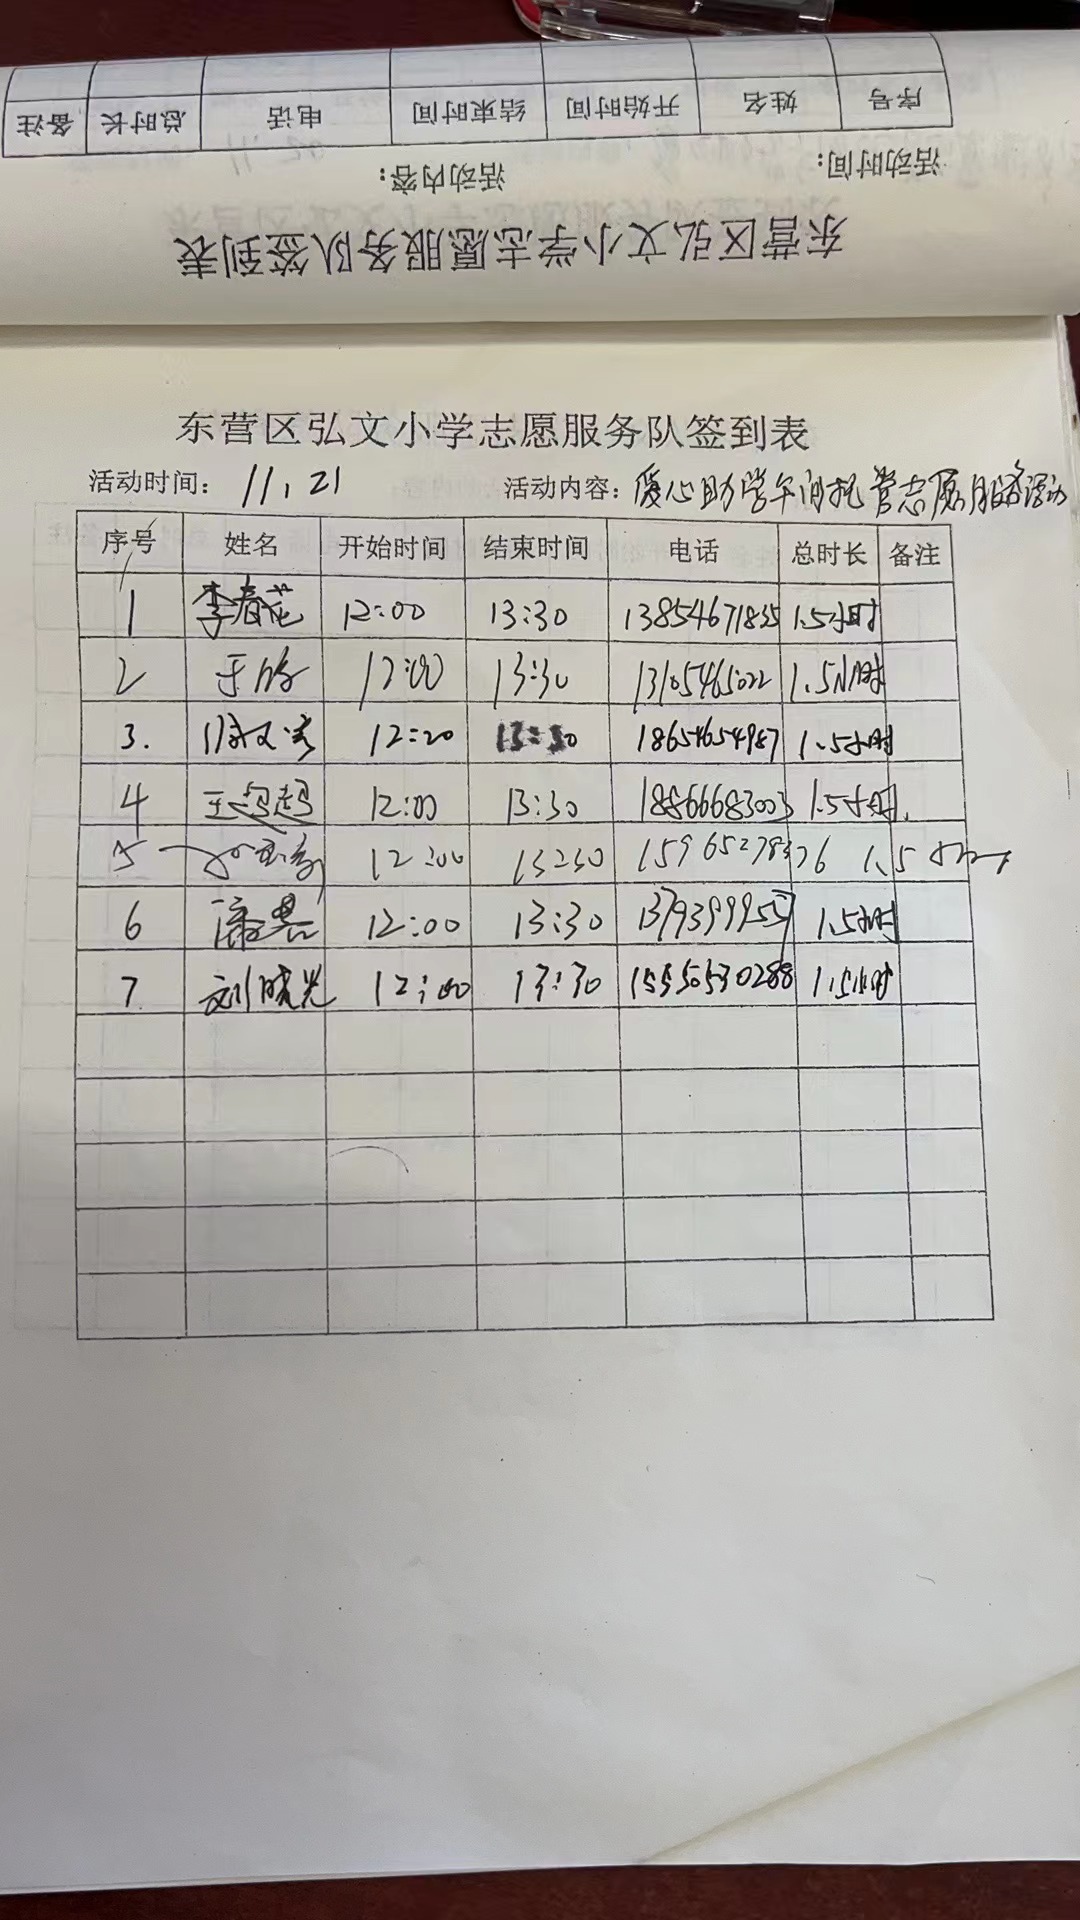 序号 姓名 开始时间 结束时间 电话 总时长 备注
活动时间： 活动内容：
东营区弘文小学志愿服务队签到表
东营区弘文小学志愿服务队签到表
活动时间： 11.21 活动内容：爱心助学午间托管志愿服务活动
序号 姓名 开始时间 结束时间 电话 总时长 备注
1 李春花 12:00 13:30 13854671835 1.5小时
2 12:00 13:30 13105465022 1.5小时
3. 12:20 13:30 18654654987 1.5小时
4 王 12:00 13:30 18866683003 1.5小时.
5 12:00 13:30 1.5
6 12:00 13:30 13793999557 1.5小时
7. 刘晓光 12:00 13:30 15550530288 1.5小时